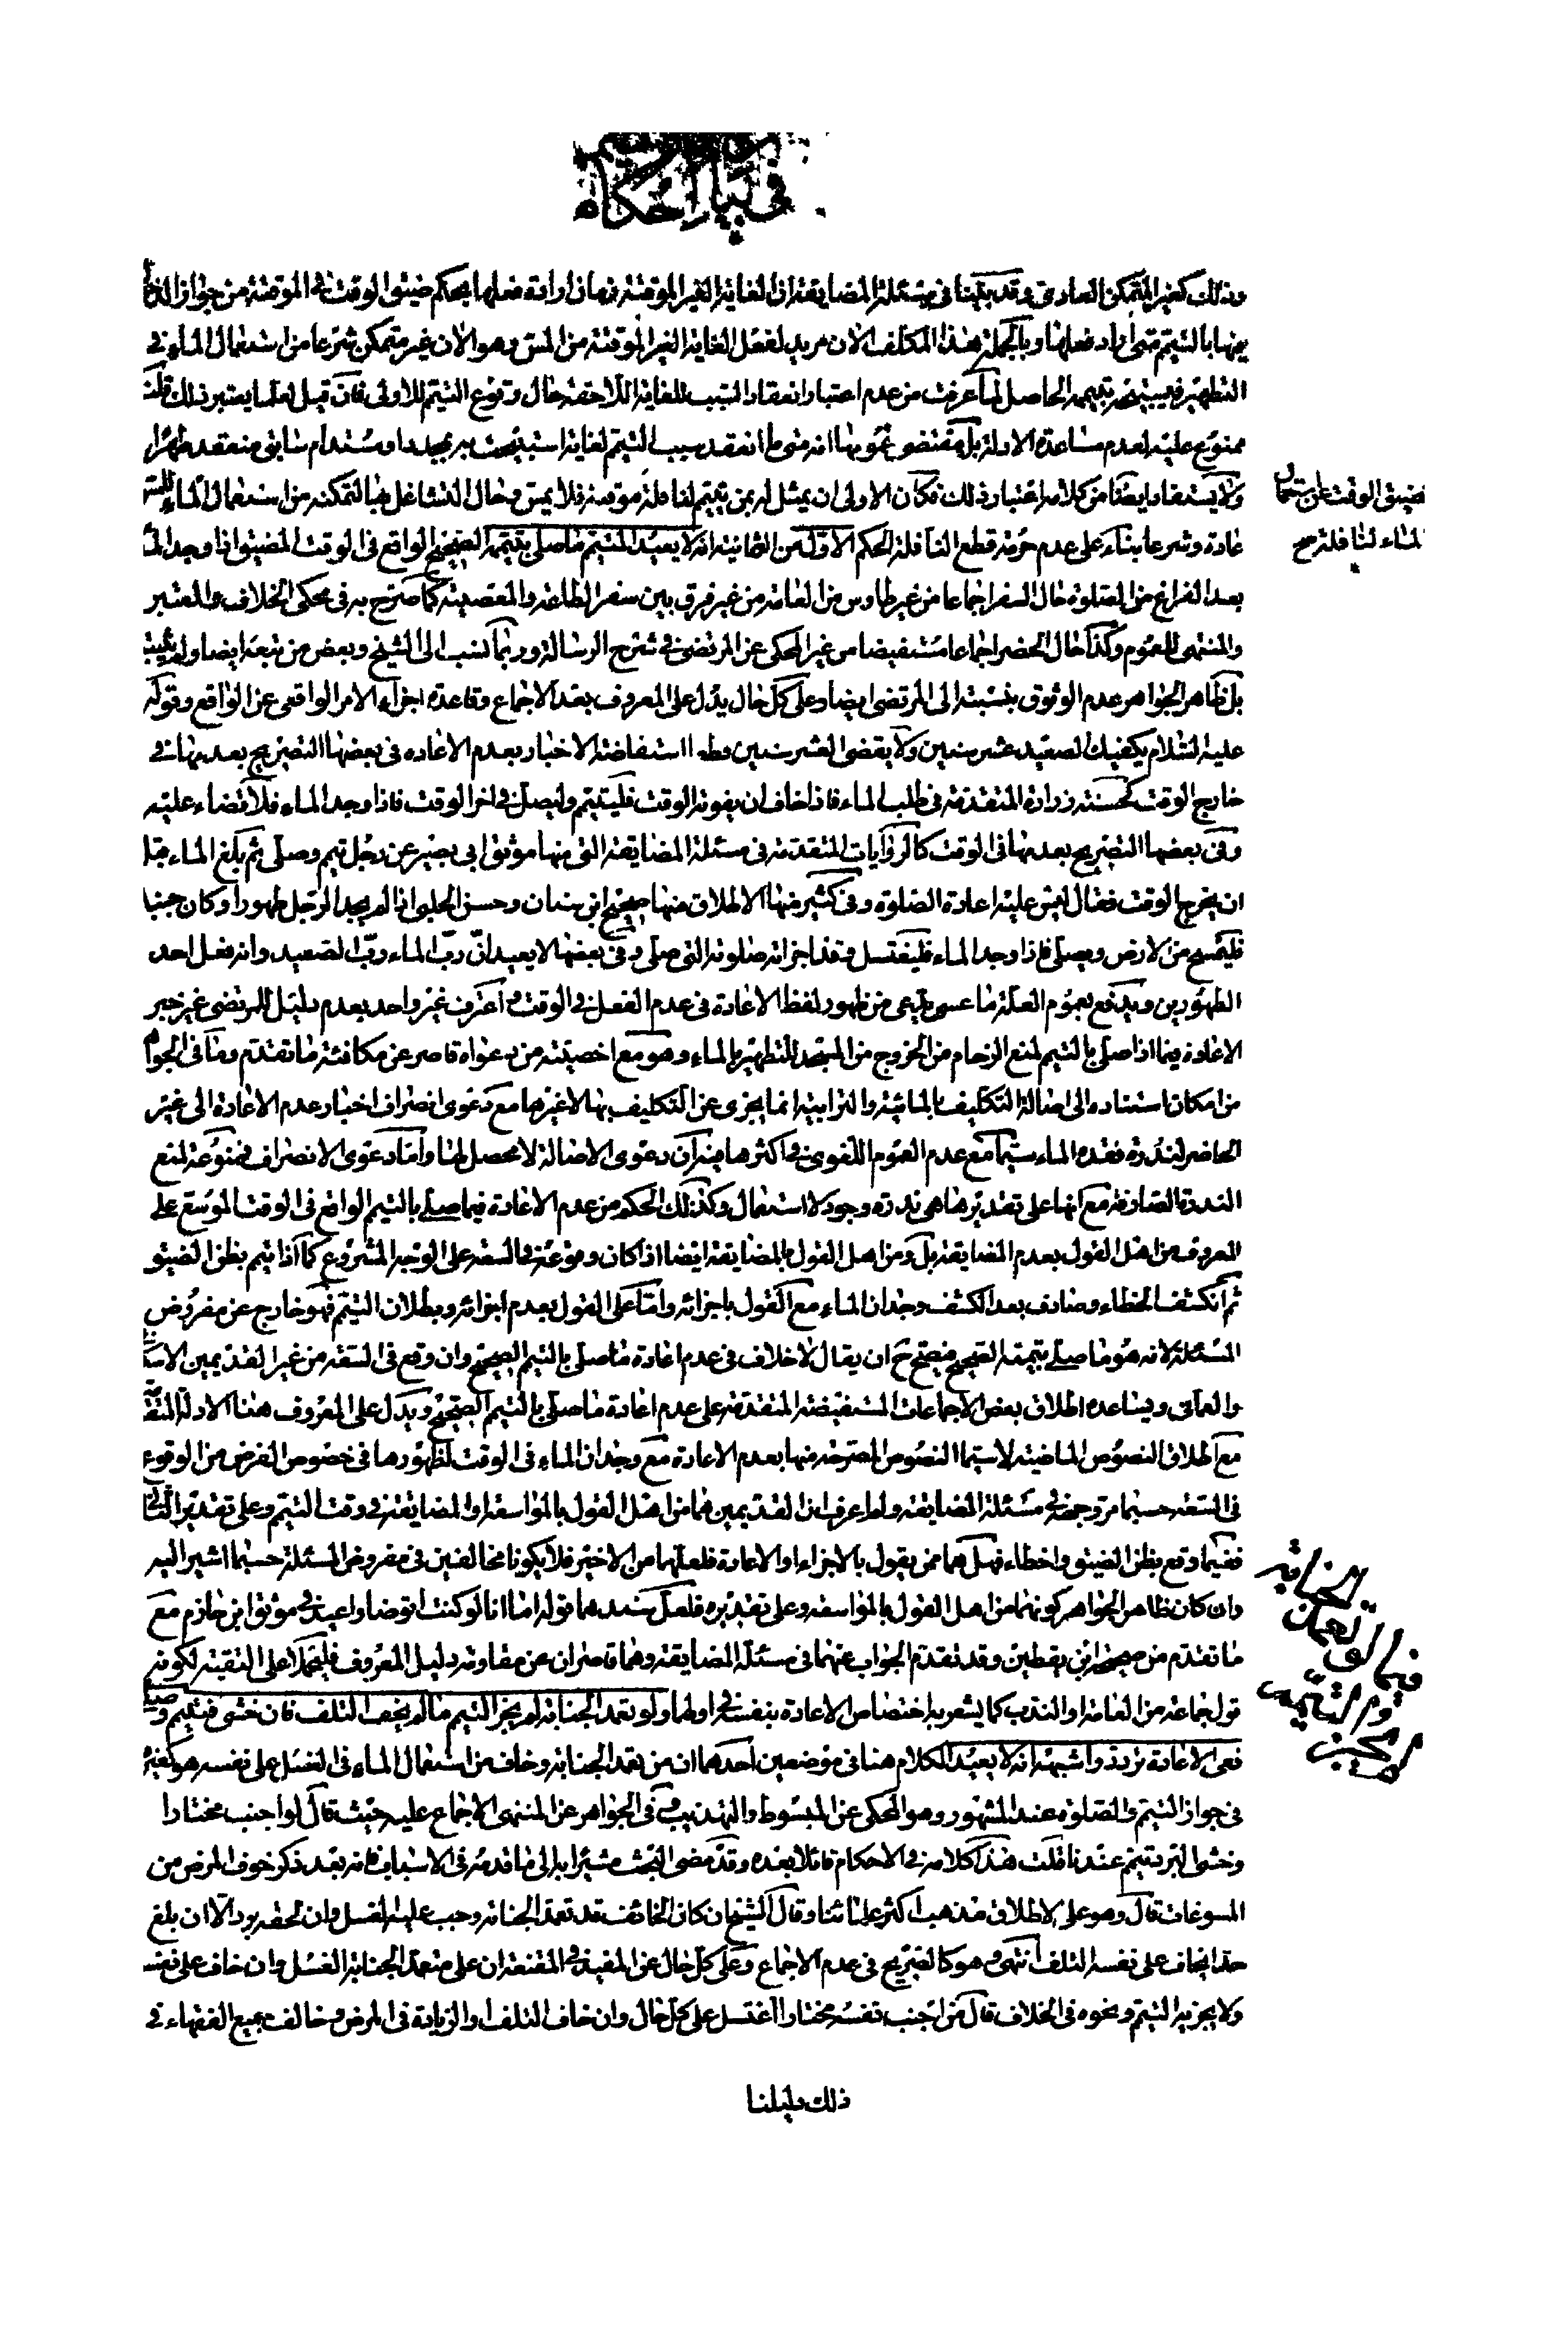 في بيان احكام
وذلك كغير المتمكن العادي وقد بينا في مسئلة المضايقة ان الغاية الغير الموقتة زمان ارادة فعلها بحكم ضيق الوقت في الموقتة من جواز
بالتيمم متى اراد فعلها وبالجملة هذا المكلف الان مريد لفعل الغاية الغير الموقتة من المس وهو الان غير متمكن شرعا من استعمال الماء في
التطهير بتيممه الحاصل لما عرفت من عدم اعتبار انعقاد السبب للغاية اللاحقة حال وقوع التيمم للاولى فان قيل لعلنا يعتبر ذلك قلت
ممنوع عليه لعدم مساعدة الادلة بل مقتضى عمومها انه متى ما انعقد سبب التيمم لغاية استبيحت به مجددا ومستدام سابق منعقد
ولا يستفاد ايضا من كلامه اعتبار ذلك فكان الاولى ان يمثل له بمن تيمم لنافلة موقتة فلا يمس في حال التشاغل بها لتمكنه من استعمال الماء للمس
عادة وشرعا بناء على عدم حرمة قطع النافلة الحكم الاول من الثمانية انه لا يعيد المتيمم ما صلى بتيممه الصحيح الواقع في الوقت المضيق اذا وجد الماء
بعد الفراغ من الصلوة حال السفر اجماعا من غير طاوس من العامة من غير فرق بين سفر الطاعة والمعصية كما صرح به في محكي الخلاف والمعتبر
والمنتهى للعموم وكذا حال الحضر اجماعا مستفيضا من غير المحكي عن المرتضى في شرح الرسالة وربما نسب الى الشيخ وبعض من تبعه ايضا ولم يثبت
بل ظاهر الجواهر عدم الوثوق بنسبته الى المرتضى ايضا وعلى كل حال يدل على المعروف بعد الاجماع وقاعدة اجزاء الامر الواقعي عن الواقع وقوله
عليه السلام يكفيك الصعيد عشر سنين ولا يقضى العشر سنين استفاضة الاخبار بعدم الاعادة في بعضها التصريح بعدمها في
خارج الوقت كحسنة زرارة المتقدمة في طلب الماء فاذا خاف ان يفوته الوقت فليتيمم وليصل في اخر الوقت فاذا وجد الماء فلا قضاء عليه
وفي بعضها التصريح بعدمها في الوقت كالروايات المتقدمة في مسئلة المضايقة التي منها موثق ابي بصير عن رجل تيمم وصلى ثم بلغ الماء قبل
ان يخرج الوقت فقال ليس عليه اعادة الصلوة وفي كثير منها الاطلاق منها صحيح ابن سنان وحسن الحلبي اذا لم يجد الرجل طهورا وكان جنبا
فليمسح من الارض ويصلي فاذا وجد الماء فليغتسل وقد اجزأته صلوته التي صلى وفي بعضها لا يعيد ان رب الماء رب الصعيد وانه فعل احد
الطهورين ويدفع بعموم العلة ما عسى يدعى من ظهور لفظ الاعادة في عدم الفعل في الوقت اعترف غير واحد بعدم دليل للمرتضى غير خبر
الاعادة فيما اذا صلى بالتيمم لمنع الزحام من الخروج من المسجد للتطهير بالماء وهو مع اخصيته من دعواه قاصر عن مكافئة ما تقدم وما في الجواهر
من امكان استناده الى اصالة التكليف بالمائية والترابية انما يجزي عن التكليف بها لا غيرها مع دعوى انصراف اخبار عدم الاعادة الى غير
الحاضر لندرة فقده الماء سيما مع عدم العموم اللغوي في اكثرها فيه ان دعوى الاصالة لا محصل لها واما دعوى الانصراف فممنوعة لمنع
الندرة الصارفة مع انها على تقديرها هي ندرة وجود لا استعمال وكذلك الحكم من عدم الاعادة فيما صلى بالتيمم الواقع في الوقت الموسع على
المعروف من اهل القول بعدم المضايقة بل ومن اهل القول بالمضايقة ايضا اذا كان وقوعه في السعة على الوجه المشروع كما اذا تيمم بظن الضيق
ثم انكشف الخطاء وصادف بعد الكشف وجدان الماء مع القول باجزائه واما على القول بعدم اجزائه وبطلان التيمم فهو خارج عن مفروض
المسئلة لانه هو ما صلى بتيممه الصحيح فيصح ح ان يقال لا خلاف في عدم اعادة ما صلى بالتيمم الصحيح وان وقع في السعة من غير القديمين
والعماني ويساعده اطلاق بعض الاجماعات المستفيضة المتقدمة على عدم اعادة ما صلى بالتيمم الصحيح ويدل على المعروف هنا الادلة
مع اطلاق النصوص الماضية لا سيما النصوص المصرحة منها بعدم الاعادة مع وجدان الماء في الوقت لظهورها في خصوص الفرض من الوقوع
في السعة حسبما مر وجهه في مسئلة المضايقة ولما عرف ان القديمين هما من اهل القول بالمواسعة او المضايقة في وقت التيمم وعلى تقدير الثاني
ففيما وقع بظن الضيق واخطاء فهل هما ممن يقول بالاجزاء او الاعادة فلعلهما من الاخير فلا يكونا مخالفين في مفروض المسئلة حسبما اشير اليه
وان كان ظاهر الجواهر كونهما من اهل القول بالمواسعة وعلى تقديره فلعل سندهما قوله اما انا لو كنت اتوضا واعيد في موثق ابن حازم مع
ما تقدم من صحيح ابن يقطين وقد تقدم الجواب عنهما في مسئلة المضايقة وهما قاصران عن مقاومة دليل المعروف فليحملا على التقية لكونه
قول جماعة من العامة او الندب كما يشعر به اختصاص الاعادة بنفسه في اولهما ولو تعمد الجنابة لم يجز التيمم ما لم يخف التلف فان خشي فتيمم وصلى
ففي الاعادة تردد واشبهه انه لا يعيد الكلام هنا في موضعين احدهما ان من تعمد الجنابة وخاف من استعمال الماء في الغسل على نفسه هو كغيره
في جواز التيمم والصلوة عند المشهور وهو المحكي عن المبسوط والتهذيب وفي الجواهر عن المنتهى الاجماع عليه حيث قال لو اجنب مختارا
وخشي البرد تيمم عندنا قلت هذا كلامه في الاحكام قائلا بعده وقد مضى البحث مشيرا به الى ما قدمه في الاسباب فانه بعد ذكر خوف المرض من
المسوغات قال وهو على الاطلاق مذهب اكثر علمائنا وقال الشيخان كان الخائف قد تعمد الجنابة وجب عليه الغسل وان لحقه برد الا ان بلغ
حدا يخاف على نفسه التلف انتهى وهو كالصريح في عدم الاجماع وعلى كل حال عن المفيد في المقنعة ان على متعمد الجنابة الغسل وان خاف على نفسه
ولا يجزيه التيمم ونحوه في الخلاف قال من اجنب نفسه مختارا اغتسل على كل حال وان خاف التلف او الزيادة في المرض وخالف جميع الفقهاء في
ذلك دليلنا
الوقت عن استعمال
الماء لنافلة صح
الجنابة
فيما لو تعمد